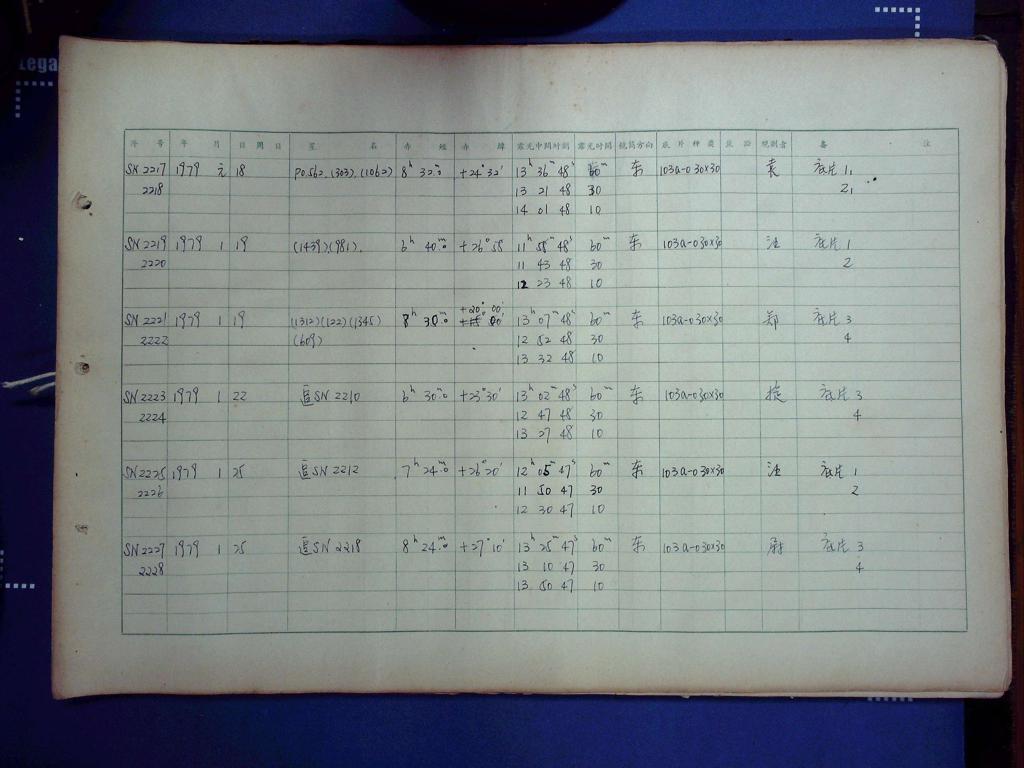 Lega
序号 年 月 日 周日 星名 赤经 赤纬 露光中间时刻 露光时间 镜筒方向 底片种类 底版 观测者 备注
SN 2217 1979 元 18 P0.562, (303), (1062) 8h 32m.0 +24°32′ 13h 36m 48s 60m 东 103a-0 30×30 袁 底片 1,
2218 13 21 48 30 2,
14 01 48 10
SN 2219 1979 1 19 (1439), (981), 6h 40m.0 +26°58′ 11h 58m 48s 60m 东 103a-0 30×30 汪 底片 1
2220 11 43 48 30 2
12 23 48 10
+20°00′
SN 2221 1979 1 19 (1312)(122)(1345) 8h 30m.0 13h 07m 48s 60m 东 103a-0 30×30 郑 底片 3
2222 (609) 12 52 48 30 4
13 32 48 10
SN 2223 1979 1 22 追SN 2210 6h 30m.0 +23°30′ 13h 02m 48s 60m 东 103a-0 30×30 底片 3
2224 12 47 48 30 4
13 27 48 10
SN 2225 1979 1 25 追SN 2212 7h 24m.0 +26°20′ 12h 05m 47s 60m 东 103a-0 30×30 汪 底片 1
2226 11 50 47 30 2
12 30 47 10
SN 2227 1979 1 25 追SN 2218 8h 24m.0 +27°10′ 13h 25m 47s 60m 东 103a-0 30×30 尉 底片 3
2228 13 10 47 30 4
13 50 47 10